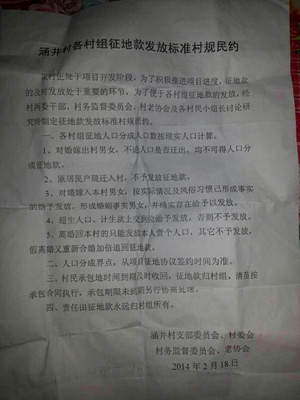 涵井村各村组征地款发放标准村规民约
我村正处于项目开发阶段，为了积极推进项目进度，征地款
的及时发放处于重要的环节。为了便于各村组征地款的发放，经
村两委干部、村务监督委员会、村老协会及各村民小组长讨论研
究特制定征地款发放标准村规民约。
一、各村组征地人口分成人口数按现实人口计算。
1、对婚嫁出村男女，不论人口是否迁出，均不可得人口分
成征地款。
2、原居民户籍迁入村，不予发放征地款。
3、对婚嫁入本村男女，按实际情况及风俗习惯已形成事实
的给予发放，形成婚姻事实男女，并确实存在给予以发放。
4、超生人口，计生款上交到位给予发放，否则不予发放。
5、离婚回本村的只能发放本人壹个人口，其它不予发放，
假离婚又重新合婚加倍追回征地款。
二、人口分成界点，从项目征地协议签约时间为准。
三、村民承包地时间到期及时收回，征地款归村组，清苗按
承包合同执行，承包期限未到期另行协商处理。
四、责任田征地款永远归村组所有。
涵井村支部委员会、村委会
村务监督委员会、老协会
2014 年 2 月 18 日